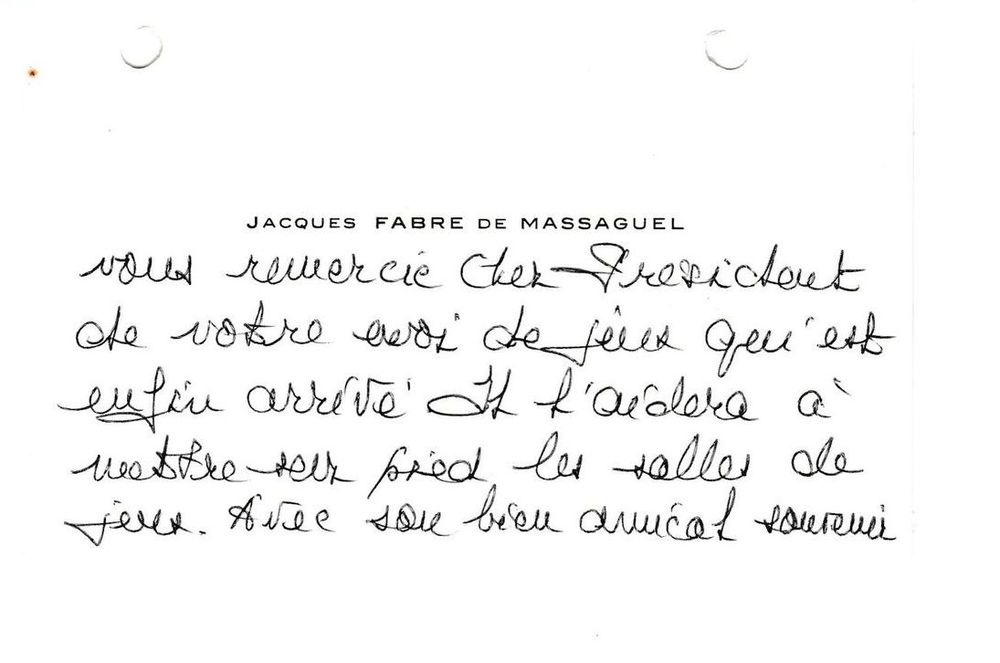 JACQUES FABRE DE MASSAGUEL
vous remercie Cher Président
de votre envoi de jeux qui est
enfin arrivé Il l'aidera à
mettre sur pied les salles de
jeux. Avec son bien amical souvenir